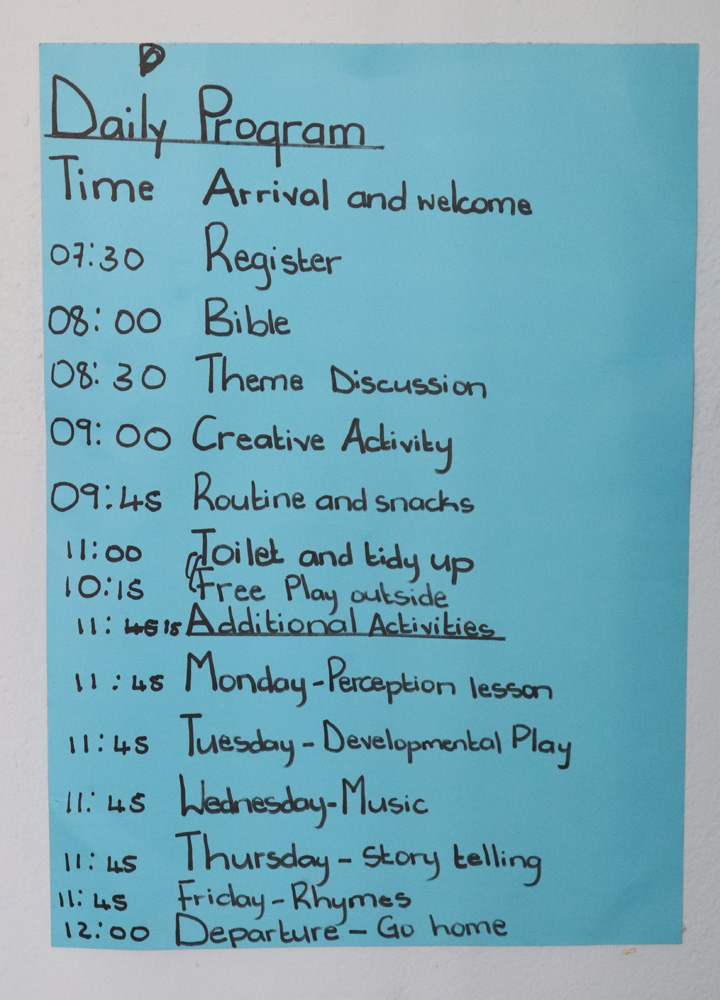 Daily Program
Time Arrival and welcome
07:30 Register
08:00 Bible
08:30 Theme Discussion
09:00 Creative Activity
09:45 Routine and snacks
11:00 Toilet and tidy up
10:15 Free Play outside
11:45 15 Additional Activities
11:45 Monday-Perception lesson
11:45 Tuesday-Developmental Play
11:45 Wednesday-Music
11:45 Thursday-Story telling
11:45 Friday-Rhymes
12:00 Departure-Go home